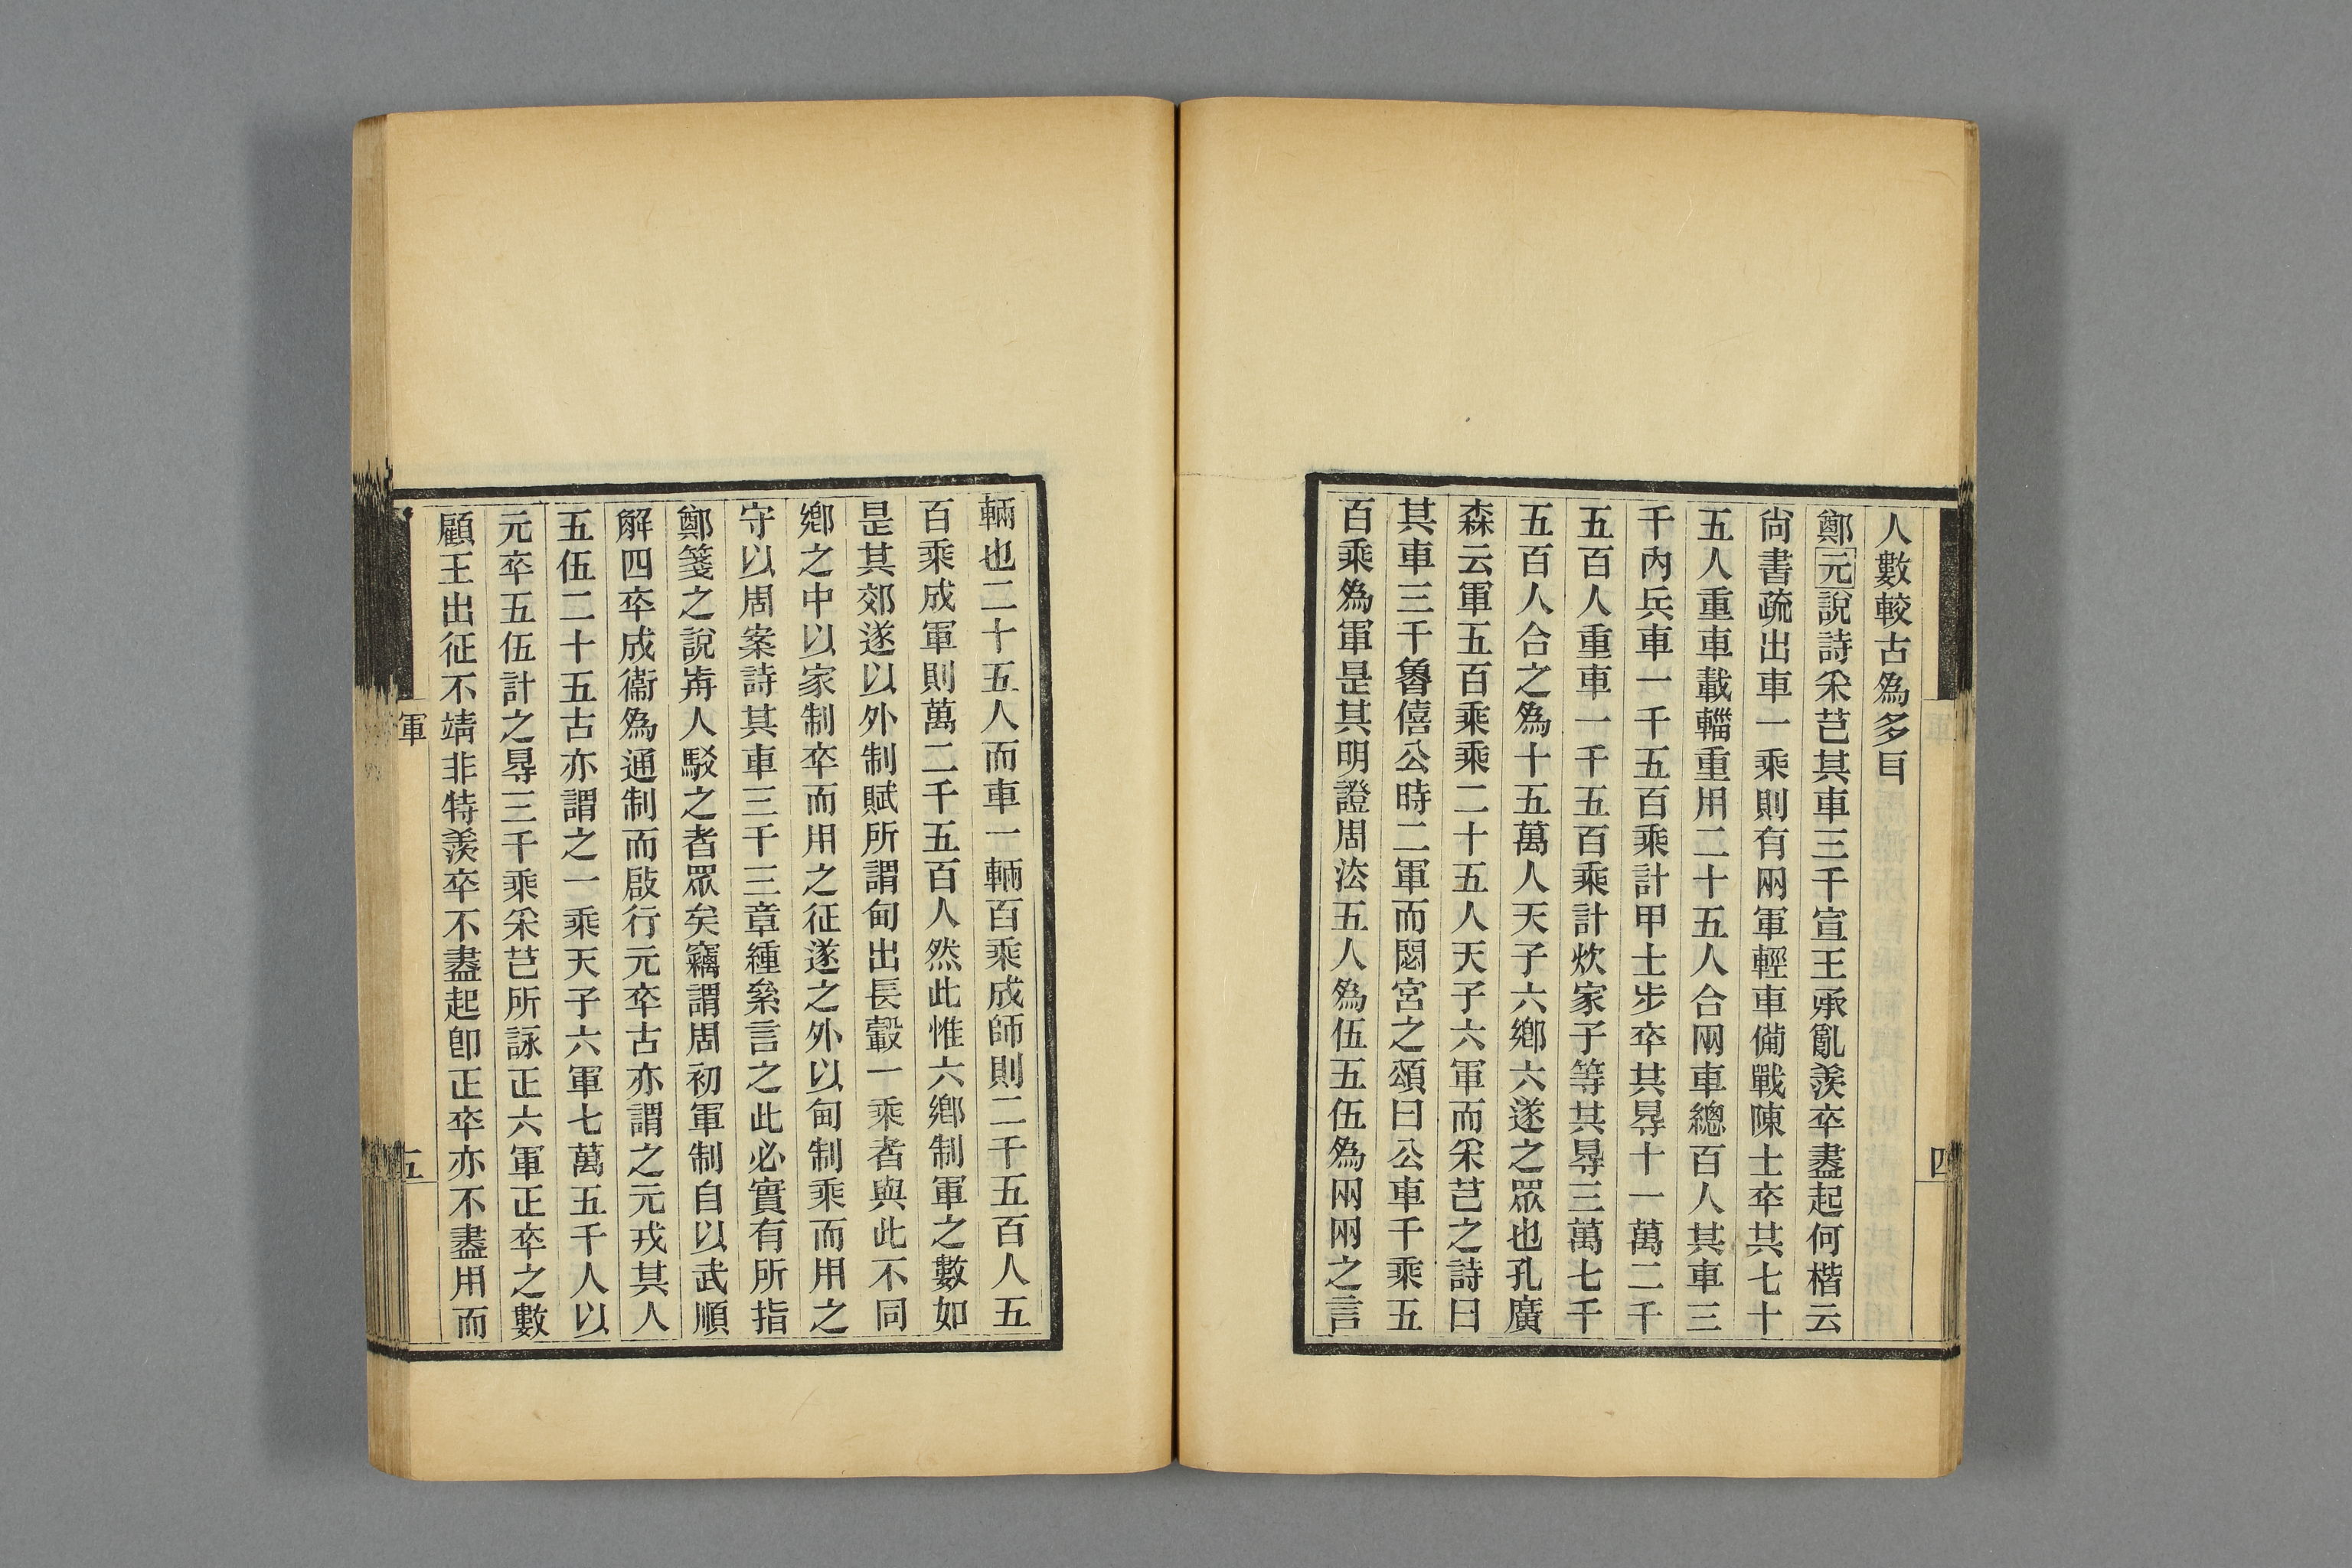 人數較古爲多㠯
鄭元說詩采芑其車三千宣王承亂羨卒盡起何楷云
尙書疏出車一乘則有兩軍輕車備戰陳士卒共七十
五人重車載輜重用二十五人合兩車總百人其車三
千內兵車一千五百乘計甲士步卒共㝵十一萬二千
五百人重車一千五百乘計炊家子等共㝵三萬七千
五百人合之爲十五萬人天子六鄉六遂之眾也孔廣
森云軍五百乘乘二十五人天子六軍而采芑之詩曰
其車三千魯僖公時二軍而閟宮之頌曰公車千乘五
百乘爲軍是其明證周法五人爲伍五伍爲兩兩之言
輛也二十五人而車一輛百乘成師則二千五百人五
百乘成軍則萬二千五百人然此惟六鄉制軍之數如
是其郊遂以外制賦所謂甸出長轂一乘者與此不同
鄉之中以家制卒而用之征遂之外以甸制乘而用之
守以周案詩其車三千三章緟絫言之此必實有所指
鄭箋之說歬人駁之者眾矣竊謂周初軍制自以武順
解四卒成衞爲通制而啟行元卒古亦謂之元戎其人
五伍二十五古亦謂之一乘天子六軍七萬五千人以
元卒五伍計之㝵三千乘采芑所詠正六軍正卒之數
顧王出征不靖非特羨卒不盡起卽正卒亦不盡用而
軍
五
四